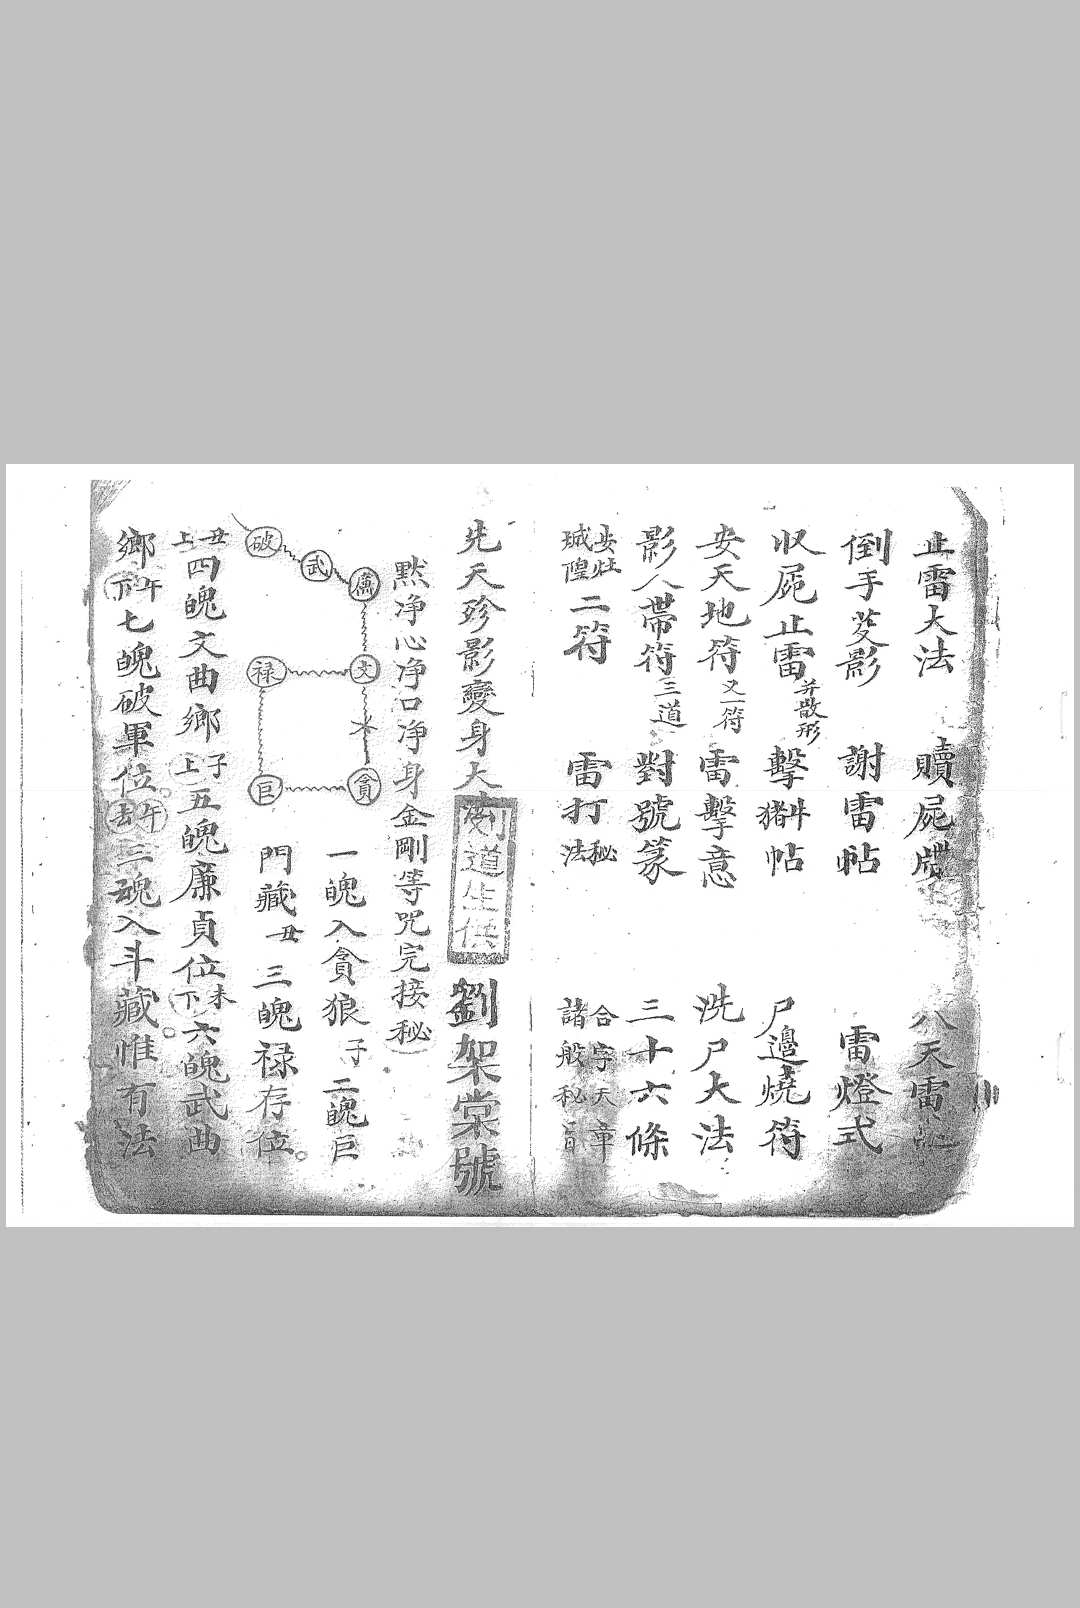 止雷大法　贖屍牒　八天雷
倒手苃影　謝雷帖　雷燈式
収屍止雷并散形　擊猪牛帖　尸邊燒符
安天地符又一符　雷擊意　洗尸大法
影人帶符三道　對號篆　三十六條
安灶城隍二符　雷打秘法　合字天章諸般秘旨
先天殄影變身大法　劉架棠號
劉道生供
默净心净口净身金剛等咒完接秘
破
武
廉
文
禄
巨
貪
一魄入貪狼子二魄巨
門藏丑三魄禄存位
丑上四魄文曲鄉子上五魄廉貞位未下六魄武曲
鄉午下七魄破軍位午去三魂入斗藏惟有法